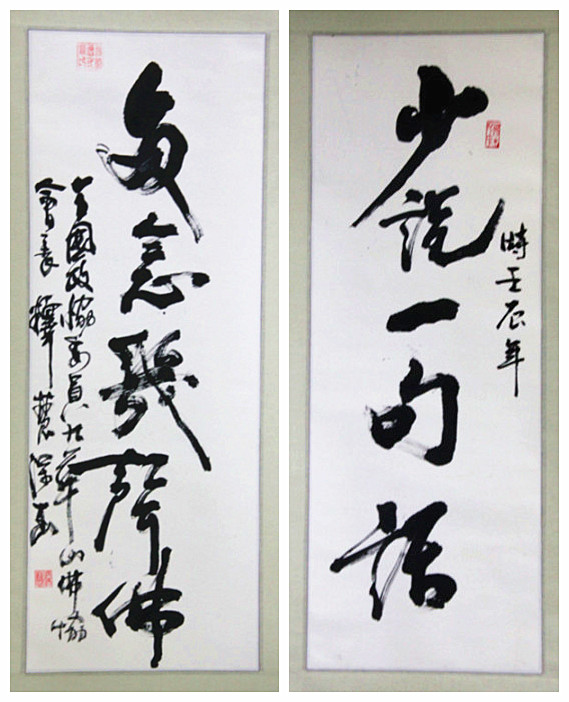 時壬辰年
少説一句話
多念幾聲佛
全國政協委員九華山佛協
會長釋慧深書